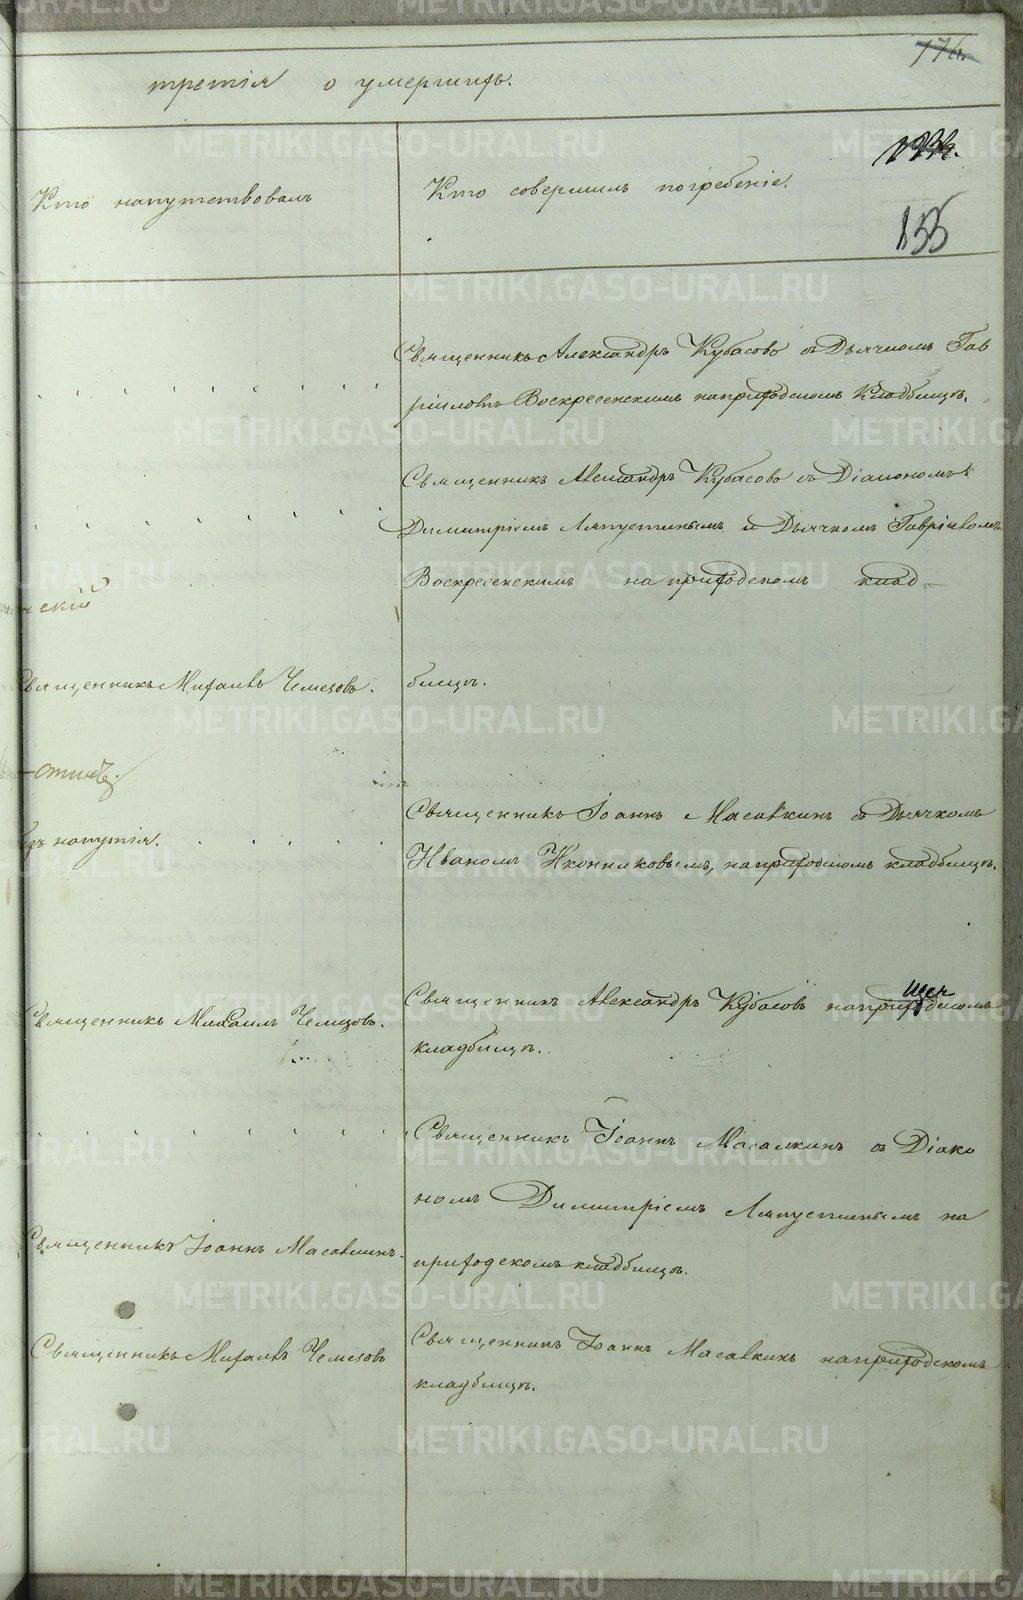 третія о умершихъ.
Кто напутствовалъ
Кто совершилъ погребеніе.
155
Священникъ Александръ Кубасовъ съ Дьячкомъ Гав
ріиломъ Воскресенскимъ на приходскомъ Кладбищѣ.
Священникъ Александръ Кубасовъ съ Діакономъ
Димитріемъ Ляпустинымъ и Дьячкомъ Гавріиломъ
Воскресенскимъ на приходскомъ клад-
ческій
Священникъ Михаилъ Чемезовъ.
бищѣ.
безъ напутія.
Священникъ Іоаннъ Масалкинъ съ Дьячкомъ
Иваномъ Иконниковымъ, на приходскомъ кладбищѣ.
Священникъ Михаилъ Чемезовъ.
Священникъ Александръ Кубасовъ на приходскомъ
кладбищѣ.
Священникъ Іоаннъ Масалкинъ съ Діако
номъ Димитріемъ Ляпустинымъ на
приходскомъ кладбищѣ.
Священникъ Іоаннъ Масалкинъ.
Священникъ Михаилъ Чемезовъ
Священникъ Іоаннъ Масалкинъ на приходскомъ
кладбищѣ.
METRIKI.GASO-URAL.RU